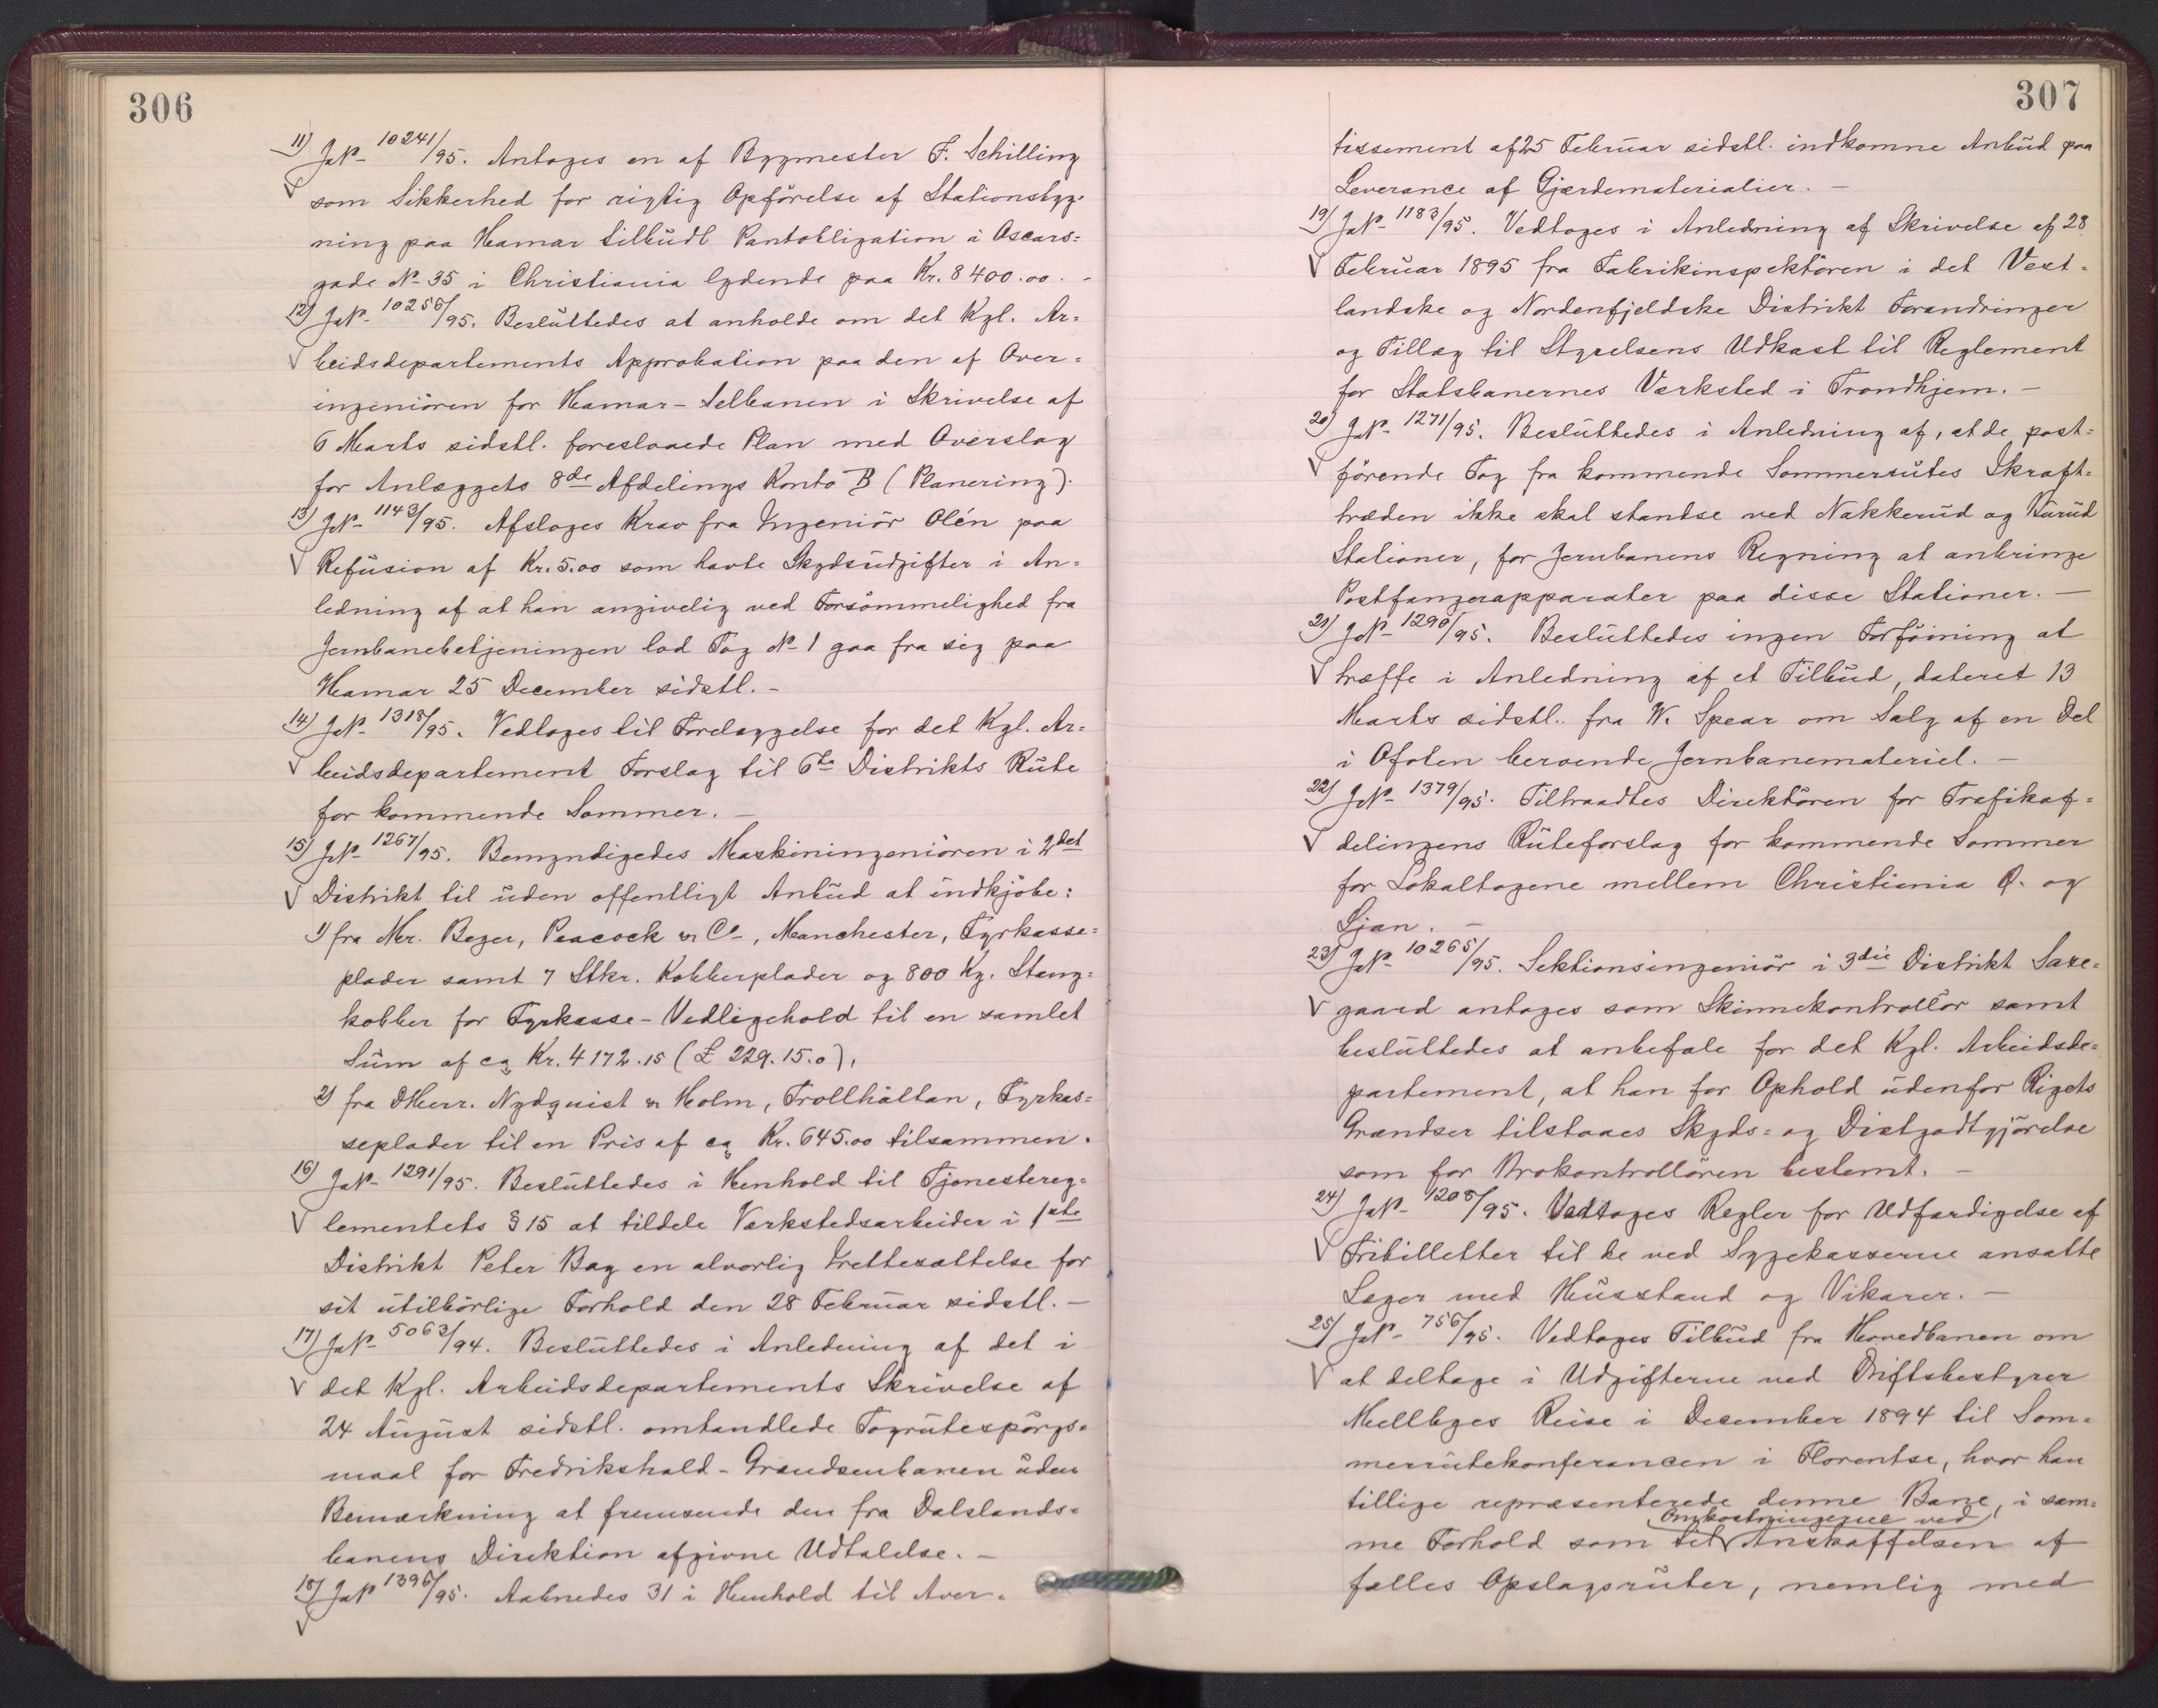 306
11) JNo 10241/95. Antoges en af Bygmester F. Schilling
som Sikkerhed for rigtig Opförelse af Stationsbyg-
ning paa Hamar tilbudt Pantobligation i Oscars=
gade No 35 i Christiania lydende paa Kr. 8400.00. -
12) JNo 10256/95. Besluttedes at anholde om det Kgl. Ar=
beidsdepartements Approbation paa den af Over=
ingeniören for Hamar-Selbanen i Skrivelse af
6 Marts sidstl. foreslaaede Plan med Overslag
for Anlæggets 8de Afdelings Konto B (Planering).
13) JNo 1143/95. Afsloges Krav fra Ingeniör Olén paa
Refusion af Kr. 5.00 som havte Skydsudgifter i An=
ledning af at han angivelig ved Forsömmelighed fra
Jernbanebetjeningen lod Tog No 1 gaa fra sig paa
Hamar 25 December sidstl. -
14) JNo 1318/95. Vedtoges til Forelæggelse for det Kgl. Ar=
beidsdepartement Forslag til 6te Distrikts Rute
for kommende Sommer. -
15) JNo 1267/95. Bemyndigedes Maskiningeniören i 2det
Distrikt til uden offentligt Anbud at indkjöbe:
1) fra Mr. Beyer, Peacock & Co, Manchester, Fyrkasse=
plader samt 7 Stkr. Kobberplader og 800 Kg. Stang=
kobber for Fyrkasse-Vedligehold til en samlet
Sum af ca Kr. 4172.15 (£ 229.15.0),
2) fra DHerr. Nydquist & Holm, Trollhältan, Fyrkas=
seplader til en Pris af ca Kr. 645.00 tilsammen.
16) JNo 1291/95. Besluttedes i Henhold til Tjenestereg=
lementets § 15 at tildele Værkstedsarbeider i 1ste
Distrikt Peter Bag en alvorlig Irettesættelse for
sit utilbörlige Forhold den 28 Februar sidstl. -
17) JNo 5063/94. Besluttedes i Anledning af det i
det Kgl. Arbeidsdepartements Skrivelse af
24 August sidstl. omhandlede Togrutespörgs=
maal for Fredrikshald-Grændsenbanen uden
Bemærkning at fremsende den fra Dalslands=
banens Direktion afgivne Udtalelse. -
18) JNo 1396/95. Aabnedes 31 i Henhold til Aver=
307
tissement af 25 Februar sidstl. indkomne Anbud paa
Leverance af Gjærdematerialier. -
19) JNo 1183/95. Vedtoges i Anledning af Skrivelse af 28
Februar 1895 fra Fabrikinspektören i det Vest=
landske og Nordenfjeldske Distrikt Forandringer
og Tillæg til Styrelsens Udkast til Reglement
for Statsbanernes Værksted i Trondhjem. -
20) JNo 1271/95. Besluttedes i Anledning af, at de post=
förende Tog fra kommende Sommerrutes Ikraft=
træden ikke skal standse ved Nakkerud og Burud
Stationer, for Jernbanens Regning at anbringe
Postfangerapparater paa disse Stationer. -
21) JNo 1290/95. Besluttedes ingen Forföining at
træffe i Anledning af et Tilbud, dateret 13
Marts sidstl. fra W. Spear om Salg af en Del
i Ofoten beroende Jernbanemateriel. -
22) JNo 1379/95. Tiltraadtes Direktören for Trafikaf=
delingens Ruteforslag for kommende Sommer
for Lokaltogene mellem Christiania Ö. og
Ljan. -
23) JNo 10265/95. Sektionsingeniör i 3die Distrikt Saxe=
gaard antoges som Skinnekontrollör samt
besluttedes at anbefale for det Kgl. Arbeidsde=
partement, at han for Ophold udenfor Rigets
Grændser tilstaaes Skyds= og Diætgodtgjörelse
som for Brokontrollören bestemt. -
24) JNo 1208/95. Vedtoges Regler for Udfærdigelse af
Fribilletter til de ved Sygekasserne ansatte
Læger med Husstand og Vikarer. -
25) JNo 756/95. Vedtoges Tilbud fra Hovedbanen om
at deltage i Udgifterne ved Driftsbestyrer
Mellbyes Reise i December 1894 til Som=
merrutekonferancen i Florentse, hvor han
tillige repræsenterede denne Bane, i sam=
Omkostningerne ved
me Forhold som til Anskaffelsen af
fælles Opslagsruter, nemlig med